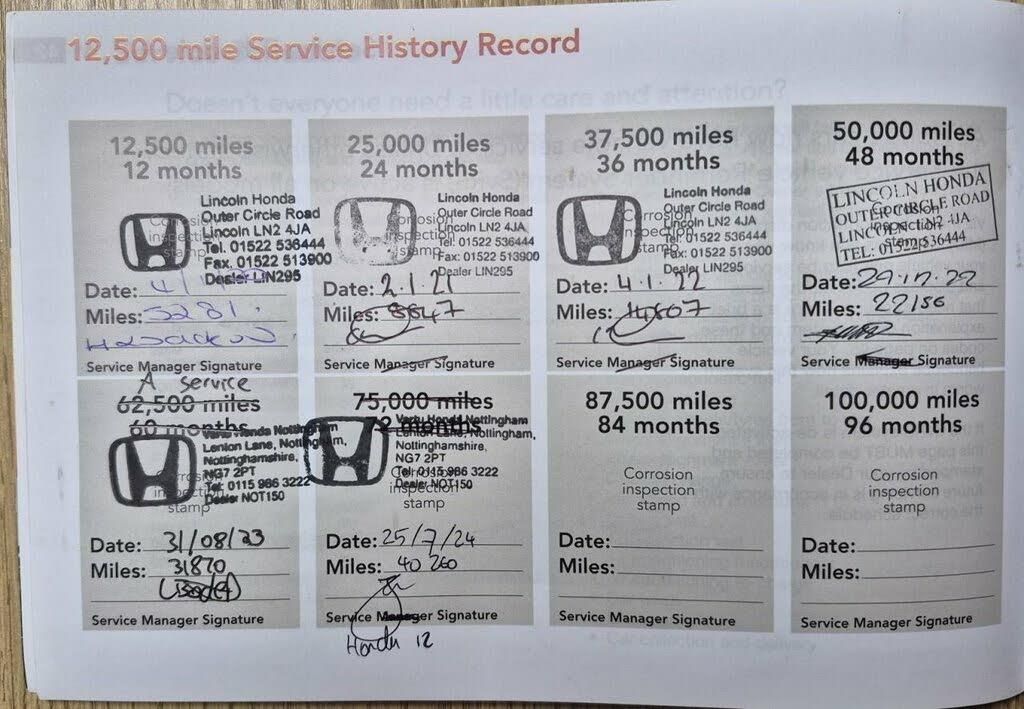 12,500 mile Service History Record
Doesn't everyone need a little care and attention?
12,500 miles
12 months
Lincoln Honda
Outer Circle Road
Lincoln LN2 4JA
Tel: 01522 536444
Fax: 01522 513900
Dealer LIN295
Corrosion
inspection
stamp
Date: 4/
Miles: 5281.
Service Manager Signature
25,000 miles
24 months
Lincoln Honda
Outer Circle Road
Lincoln LN2 4JA
Tel: 01522 536444
Fax: 01522 513900
Dealer LIN295
Corrosion
inspection
stamp
Date: 2.1.21
Miles: 8847
Service Manager Signature
37,500 miles
36 months
Lincoln Honda
Outer Circle Road
Lincoln LN2 4JA
Tel: 01522 536444
Fax: 01522 513900
Dealer LIN295
Corrosion
inspection
stamp
Date: 4.1.22
Miles: 14607
Service Manager Signature
50,000 miles
48 months
LINCOLN HONDA
OUTER CIRCLE ROAD
LINCOLN LN2 4JA
TEL: 01522 536444
Corrosion
inspection
stamp
Date: 29.12.22
Miles: 22156
Service Manager Signature
A service
62,500 miles
60 months
Vertu Honda Nottingham
Lenton Lane, Nottingham,
Nottinghamshire,
NG7 2PT
Tel: 0115 986 3222
Dealer NOT150
Corrosion
inspection
stamp
Date: 31/08/23
Miles: 31870
Service Manager Signature
75,000 miles
72 months
Vertu Honda Nottingham
Lenton Lane, Nottingham,
Nottinghamshire,
NG7 2PT
Tel: 0115 986 3222
Dealer NOT150
Corrosion
inspection
stamp
Date: 25/7/24
Miles: 40 260
Service Manager Signature
Honda 12
87,500 miles
84 months
Corrosion
inspection
stamp
Date:
Miles:
Service Manager Signature
100,000 miles
96 months
Corrosion
inspection
stamp
Date:
Miles:
Service Manager Signature